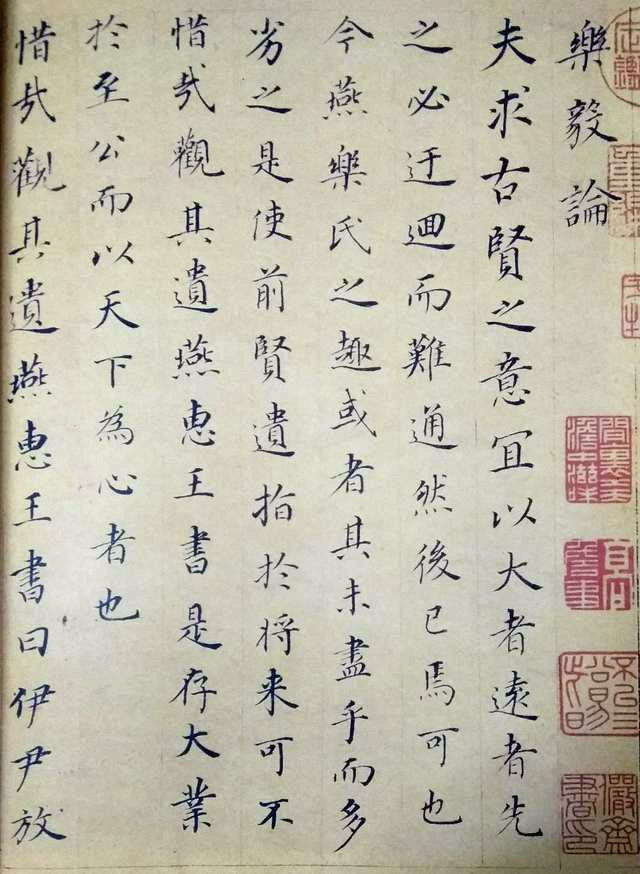 樂毅論
夫求古賢之意宜以大者遠者先
之必迂迴而難通然後已焉可也
今燕樂氏之趣或者其未盡乎而多
劣之是使前賢遺指於将来可不
惜哉觀其遺燕惠王書是存大業
於至公而以天下為心者也
惜哉觀其遺燕惠王書曰伊尹放